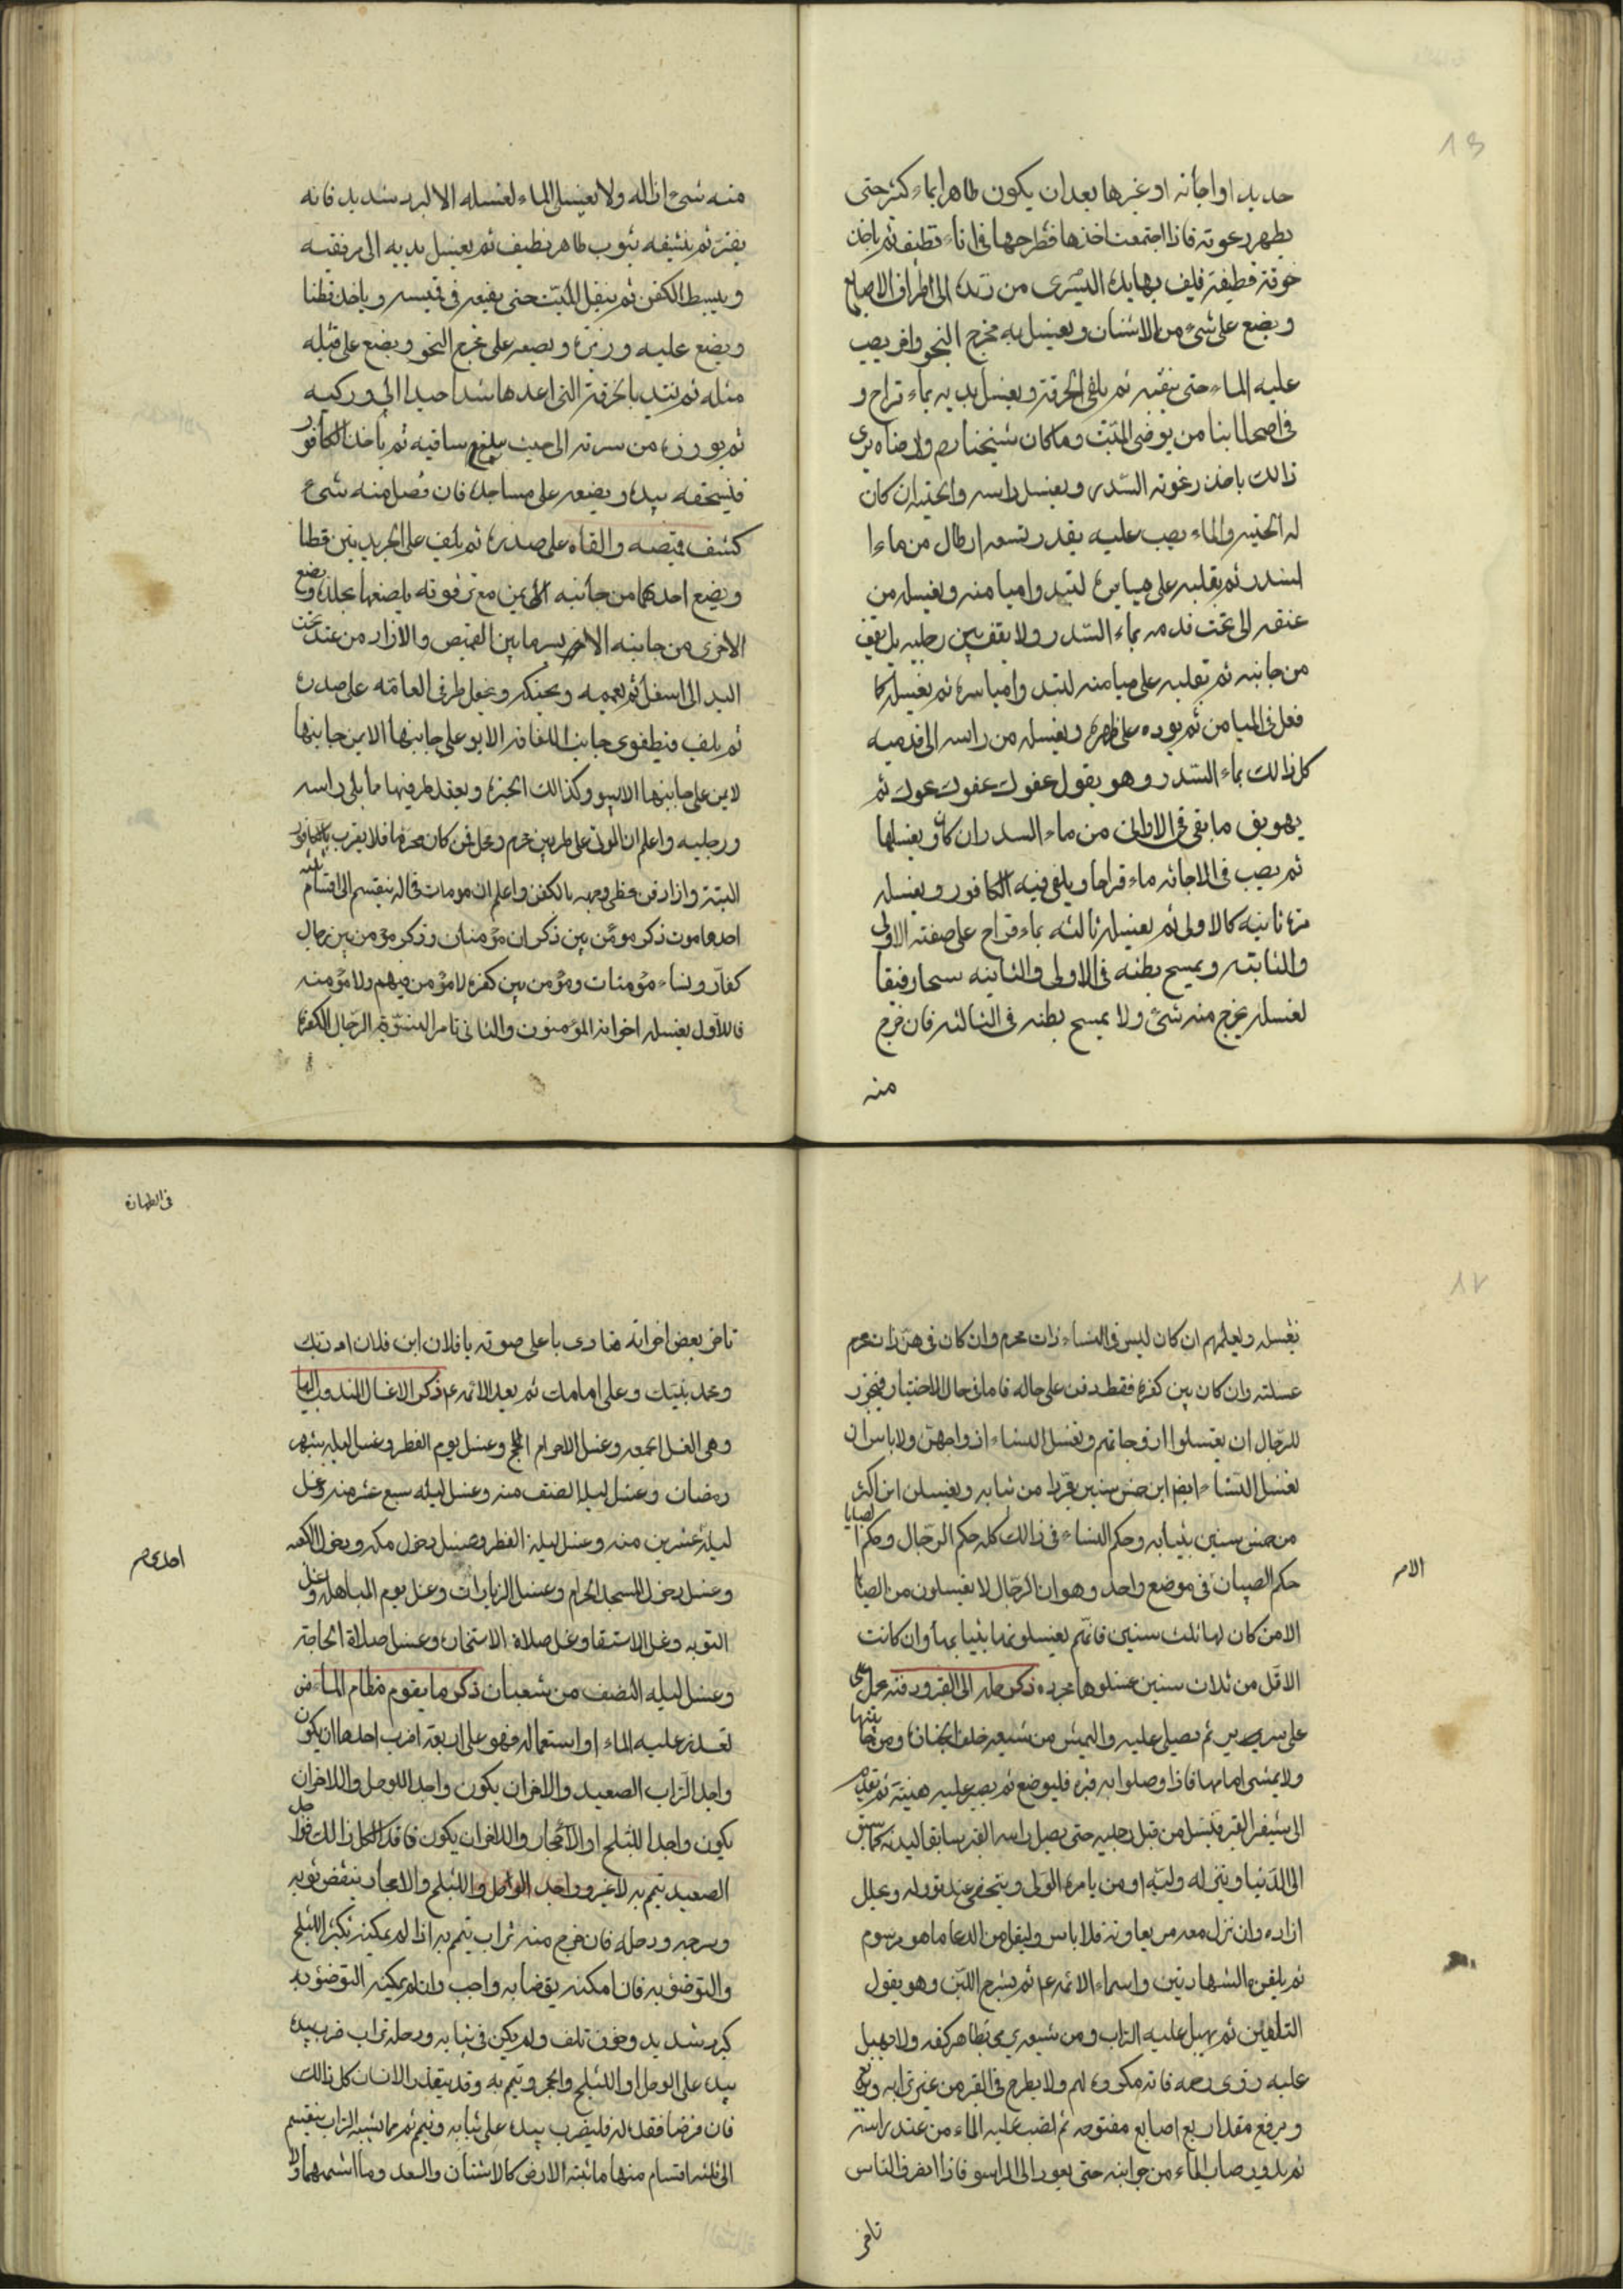 حديد او اجانه او غيرها بعد ان يكون طاهرا بماء كثير حتى
يظهر رغوته فاذا اجتمعت اخذها فطرحها فى اناء نظيف ثم ياخذ
خرقة نظيفة فليف بها يده اليسرى من زنده الى اطراف الاصابع
ويضع على شىء من الاشنان ويغسل به مخرج النجو وافر يصب
عليه الماء حتى ينقيه ثم يلقى الخرقة ويغسل يديه بماء قراح و
فى اصحابنا من يوضى الميّت وما كان شيخنا رم ولا رضاه يرى
ذالك ياخذ رغوته السّدر ويغسل راسه ولحيته ان كان
له لحيته والماء يصب عليه بقدر تسعه ارطال من ماء ا
لسدر ثم يقلبه على مياسره لتبدوا ميامنه ويغسله من
عنقه الى تحت قدمه بماء السّدر ولا يقف بين رجليه بل يقف
من جانبه ثم يقلبه على ميامنه لتبدوا مياسره ثم يغسله كما
فعل فى الميامن ثم يورده على ظهره ويغسله من راسه الى قدميه
كل ذالك بماء السّدر وهو يقول عفوك عفوك عفوك ثم
يهويق ما بقى فى الاوانى من ماء السدر ان كان ويغسلها
ثم يصب فى الاجانه ماء قراحا ويلقى فيه الكافور ويغسله
مرة ثانيه كالاولى ثم يغسله ثالثه بماء قراح على صفته الاولى
والثانيه ويمسح بطنه فى الاولى والثانيه مسحا رفيقا
لغسله يخرج منه شىء ولا يمسح بطنه فى الثالثه فان خرج
منه
منه شىء ازاله ولا يغسل الماء لغسله الا لبرد شديد فانه
يفتر ثم ينشفه بثوب طاهر نظيف ثم يغسل يديه الى مرفقيه
ويبسط الكفن ثم ينقل الميّت حتى يضعه فى قميصه وياخذ قطنا
ويضع عليه وزيرة ويضعه على مخرج النجو ويضع على قبله
مثله ثم يشد بالخرقة التى اعدها شدا جيدا الى وركيه
ثم يوزره من سرته الى حيث يبلغ ساقيه ثم ياخذ الكافور
فيسحقه بيده ويضعه على مساجده فان فضل منه شىء
كشف قميصه والقاه على صدره ثم يلف على الجريدتين قطا
ويضع احديهما من جانبه الايمن مع ترقوته يلصقها بجلده ويضع
الاخرى من جانبه الايسر ما بين القميص والازار من عند تحت
اليد الى اسفل ثم يعممه ويحنكه ويجعل طرفى العمامه على صدره
ثم يلف فيطوى جانب اللفافه الايسر على جانبها الايمن وجانبها
لايمن على جانبها الايسر وكذالك الحبرة ويعقد طرفيها مما يلى راسه
ورجليه واعلم ان الموتى على ضربين محرم ومحل فمن كان محرما فلا يقرب بالكافور
البتة وازار فى حظى وجهه بالكفن واعلم ان من مات فحاله ينقسم الى اقسام ثلثه
احدها موت ذكر مومن بين ذكران مؤمنان وذكر مؤمن بين رجال
كفار ونساء مؤمنات ومؤمن بين كفره لا مؤمن فيهم ولا مؤمنه
فالاول يغسله اخوانه المؤمنون والثانى تامر النسوة الرّجال الكفرة
يغسله ويعلمهم ان كان ليس فى النساء ذات محرم وان كان فى هن ذات محرم
غسلته وان كان بين كفرة فقط دفن على حاله فاما فى حال الاختيار فيجوز
للرّجال ان يغسلوا ازوجاتهم وتغسل النساء ازواجهن ولا باس ان
تغسل النساء ايضا ابن خمس سنين مجردا من ثيابه ويغسلن ابن اكثر
من خمس سنين بثيابه وحكم النساء فى ذالك كله حكم الرّجال وحكم الصبايا
حكم الصبيان فى موضع واحد وهو ان الرّجال لا يغسلون من الصبايا
الا من كان لها ثلث سنين فانّهم يغسلونها بثيابها وان كانت
الاقل من ثلاث سنين غسلوها مجردة ذكر حمله الى القبر ودفنه يحمل
على سرير ثم يصلى عليه واليمش من شيعه خلف الجنازة ومن جانبها
ولا يمشى امامها فاذا وصلوا به قبره فليوضع ثم يصبر عليه هنيئة ثم يقدم
الى شفير القبر فيسل من قبل رجليه حتى يصل راسه القبر سابقا لبدنه كما سبق
الى الدّنيا وينزله وليّه او من يامره الولى ويتحفى عند نزوله ويحلل
ازاره وان نزل معه من يعاونه فلا باس وليقل من الدعا ما هو مرسوم
ثم يلقن ه الشهادتين واسماء الائمه عم ثم يشرج اللبن وهو يقول
التلقين ثم يهيل عليه التراب ومن شيعه يحثى بظاهر كفه ولا يهيل
عليه ذوى رحمه فانه مكروه لهم ولا يطرح فى القبر من غير ترابه
ويرفع مقدار اربع اصابع مفتوحه ثم لصب عليه الماء من عند راسه
ثم يدور صاب الماء من جوانبه حتى يعود الى الراس فاذا انصرف الناس
تاخر
الامر
فى الطهارة
تاخر بعض اخوانه فنادى با على صوته يا فلان ابن فلان الله ربك
ومحمد نبيك وعلى امامك ثم يعد الائمه عم ذكر الاغسال المندوب اليها
وهى الغسل الجمعه وغسل الاحرام الحج وغسل يوم الفطر وغسل ليله شهر
رمضان وغسل ليلة النصف منه وغسل ليله سبع عشر منه وغسل
ليلة عشرين منه وغسل ليلة الفطر وغسل دخول مكه ودخول الكعبه
وغسل دخول المسجد الحرام وغسل الزيارات وغسل يوم المباهله وغسل
التوبه وغسل الاستسقا وغسل صلاة الاستخارة وغسل صلاة الحاجة
وغسل ليله النصف من شعبان ذكر ما يقوم مقام الماء من
تعذر عليه الماء او استعماله فهو على اربعة اضرب احدها ان يكون
واجد التراب الصعيد والاخر ان يكون واجد الوحل واللاخر ان
يكون واجدا للثلج او الاحجار والاخر ان يكون فاقد الكل ذالك فواجد
الصعيد يتيمم به لا غير وواجد الوحل والثلج والاحجار ينفض ثوبه
وسرجه ورحله فان خرج منه تراب يتمم به اذا لم يمكنه تكسر الثلج
والتوضؤ به فان امكنه توضا به واجب وان لم يمكنه التوضؤ به
كبرد شديد وخوف تلف ولم يكن فى ثيابه ورحله تراب ضرب بيده
بيده على الوحل او الثلج والحجر وتيمم به وقد يتعذر الانسان كل ذالك
فان فرضا فقد له فليضرب بيده على ثيابه وتيمم ثم ما يشبه التراب ينقسم
الى ثلثه اقسام منها ما تنبته الارض كالاشنان والسعد وما اشبههما